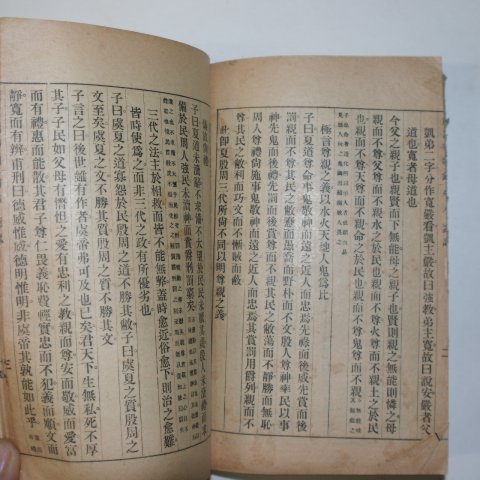 凱弟二字分作寬嚴看凱主嚴故曰強教弟主寬故曰說安嚴者父
道也寬者母道也
今父之親子也親賢而下無能母之親子也賢則親之無能則憐之母
親而不尊父尊而不親水之於民也親而不尊火尊而不親土之於民
也親而不尊天尊而不親命之於民也親而不尊鬼尊而不親
極言尊親之義以水火天地人鬼爲比
子曰夏道尊命事鬼敬神而遠之近人而忠焉先祿而後威先賞而後
罰親而不尊其民之敝惷而愚喬而野朴而不文殷人尊神率民以事
神先鬼而後禮先罰而後賞尊而不親其民之敝蕩而不靜勝而無恥
周人尊禮尙施事鬼敬神而遠之近人而忠焉其賞罰用爵列親而不
尊其民之敝利而巧文而不慚賊而蔽
此卽夏殷周三代所尙不同以明尊親之義
子曰夏道未瀆辭不求備不大望於民民未厭其親殷人未瀆禮而求
備於民周人强民未瀆神而賞爵刑罰窮矣
三代之法主於相救而皆不能無弊蓋時愈近俗愈下則治之愈難
皆時使爲之而非三代之政有所優劣也
子曰虞夏之道寡怨於民殷周之道不勝其敝子曰虞夏之質殷周之
文至矣虞夏之文不勝其質殷周之質不勝其文
子言之曰後世雖有作者虞帝弗可及也已矣君天下生無私死不厚
其子子民如父母有憯怛之愛有忠利之教親而尊安而敬威而愛富
而有禮惠而能散其君子尊仁畏義恥費輕實忠而不犯義而順文而
靜寬而有辨甫刑曰德威惟威德明惟明非虞帝其孰能如此乎